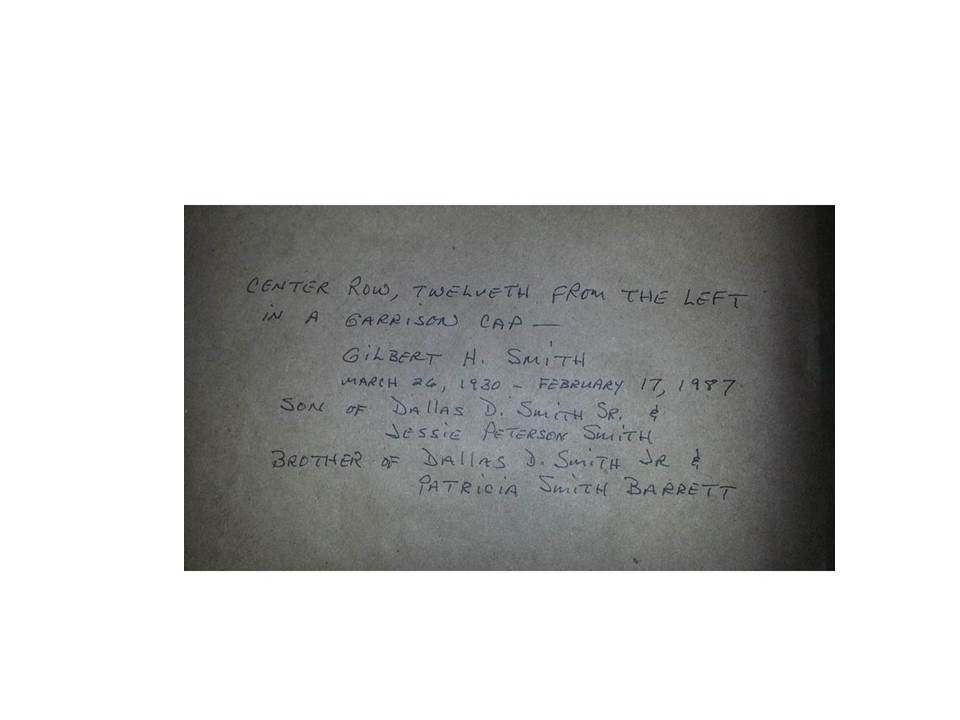 CENTER ROW, TWELVETH FROM THE LEFT
IN A GARRISON CAP —
GILBERT H. SMITH
MARCH 26, 1930 - FEBRUARY 17, 1987
SON OF DALLAS D. SMITH SR. &
JESSIE PETERSON SMITH
BROTHER OF DALLAS D. SMITH JR &
PATRICIA SMITH BARRETT